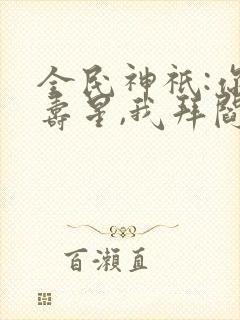 全民神祇:你
寿星,我拜阎
百濑直